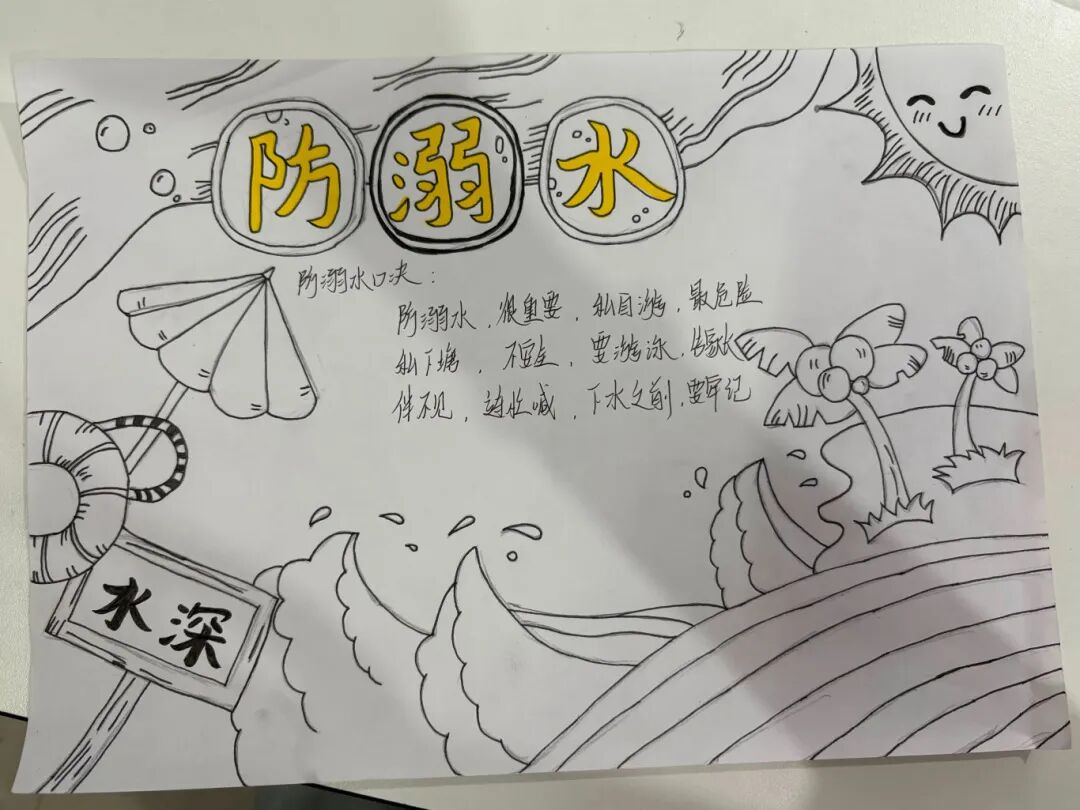 防溺水
防溺水口决:
防溺水,很重要,私自游,最危险
私下塘,不安全,要游泳,
伴不见,边忙喊,下水之前,要牢记
水深